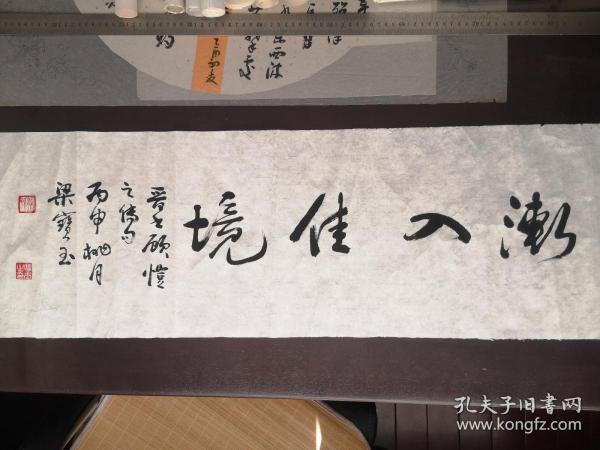 漸入佳境
晋書顧愷
之傳句
丙申桃月
梁寶玉
孔夫子旧书网
www.kongfz.com